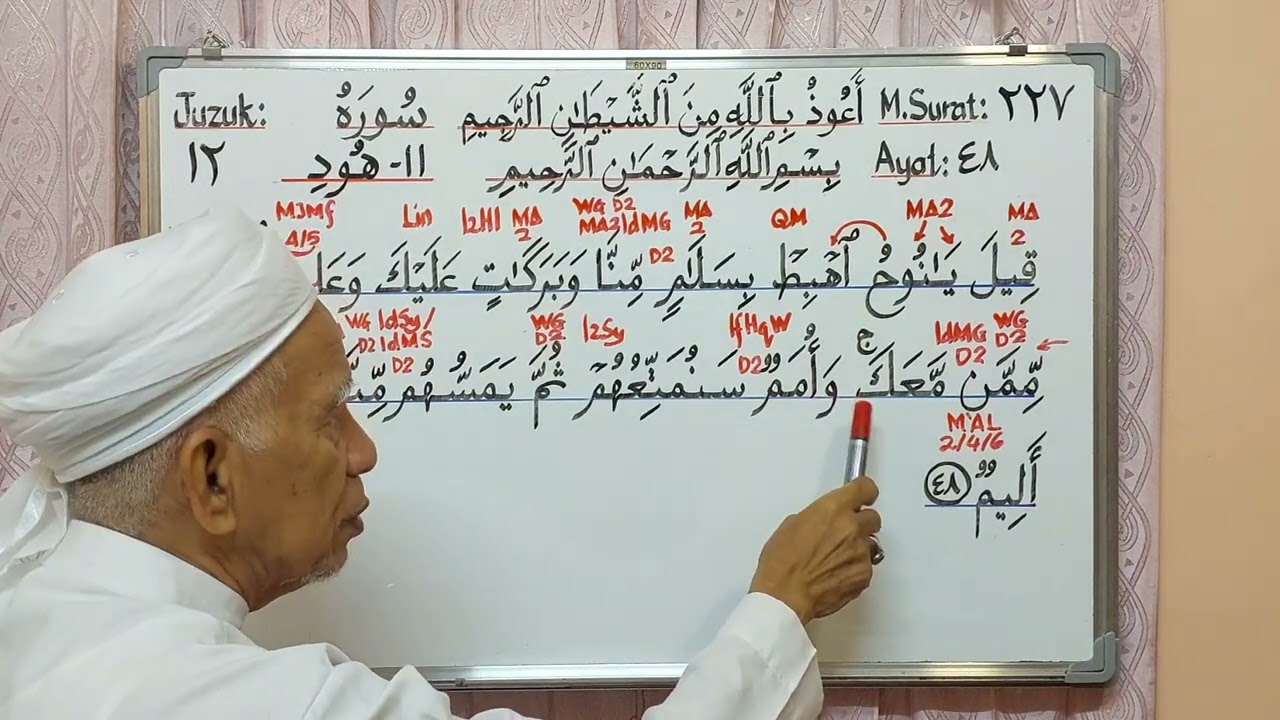 60X90
Juzuk: سُورَةُ أَعُوذُ بِٱللَّهِ مِنَ ٱلشَّيْطَٰنِ ٱلرَّجِيمِ M.Surat: ٢٢٧
١٢ ١١- هُودٍ بِسْمِ ٱللَّهِ ٱلرَّحْمَٰنِ ٱلرَّحِيمِ Ayat: ٤٨
M3Mf 4/5 Lin IzHl MA 2 WG D2 MA2 IdMG D2 MA 2 QM MA2 MA 2
قِيلَ يَٰنُوحُ ٱهْبِطْ بِسَلَٰمٍ مِّنَّا وَبَرَكَٰتٍ عَلَيْكَ
WG IdSy/ D2 IdMS D2 WG D2 IzSy IfHqW D2 IdMG D2 WG D2
مِّمَّن مَّعَكَ ج وَأُمَمٌ سَنُمَتِّعُهُمْ ثُمَّ يَمَسُّهُم
M'AL 2/4/6
أَلِيمٌ ٤٨